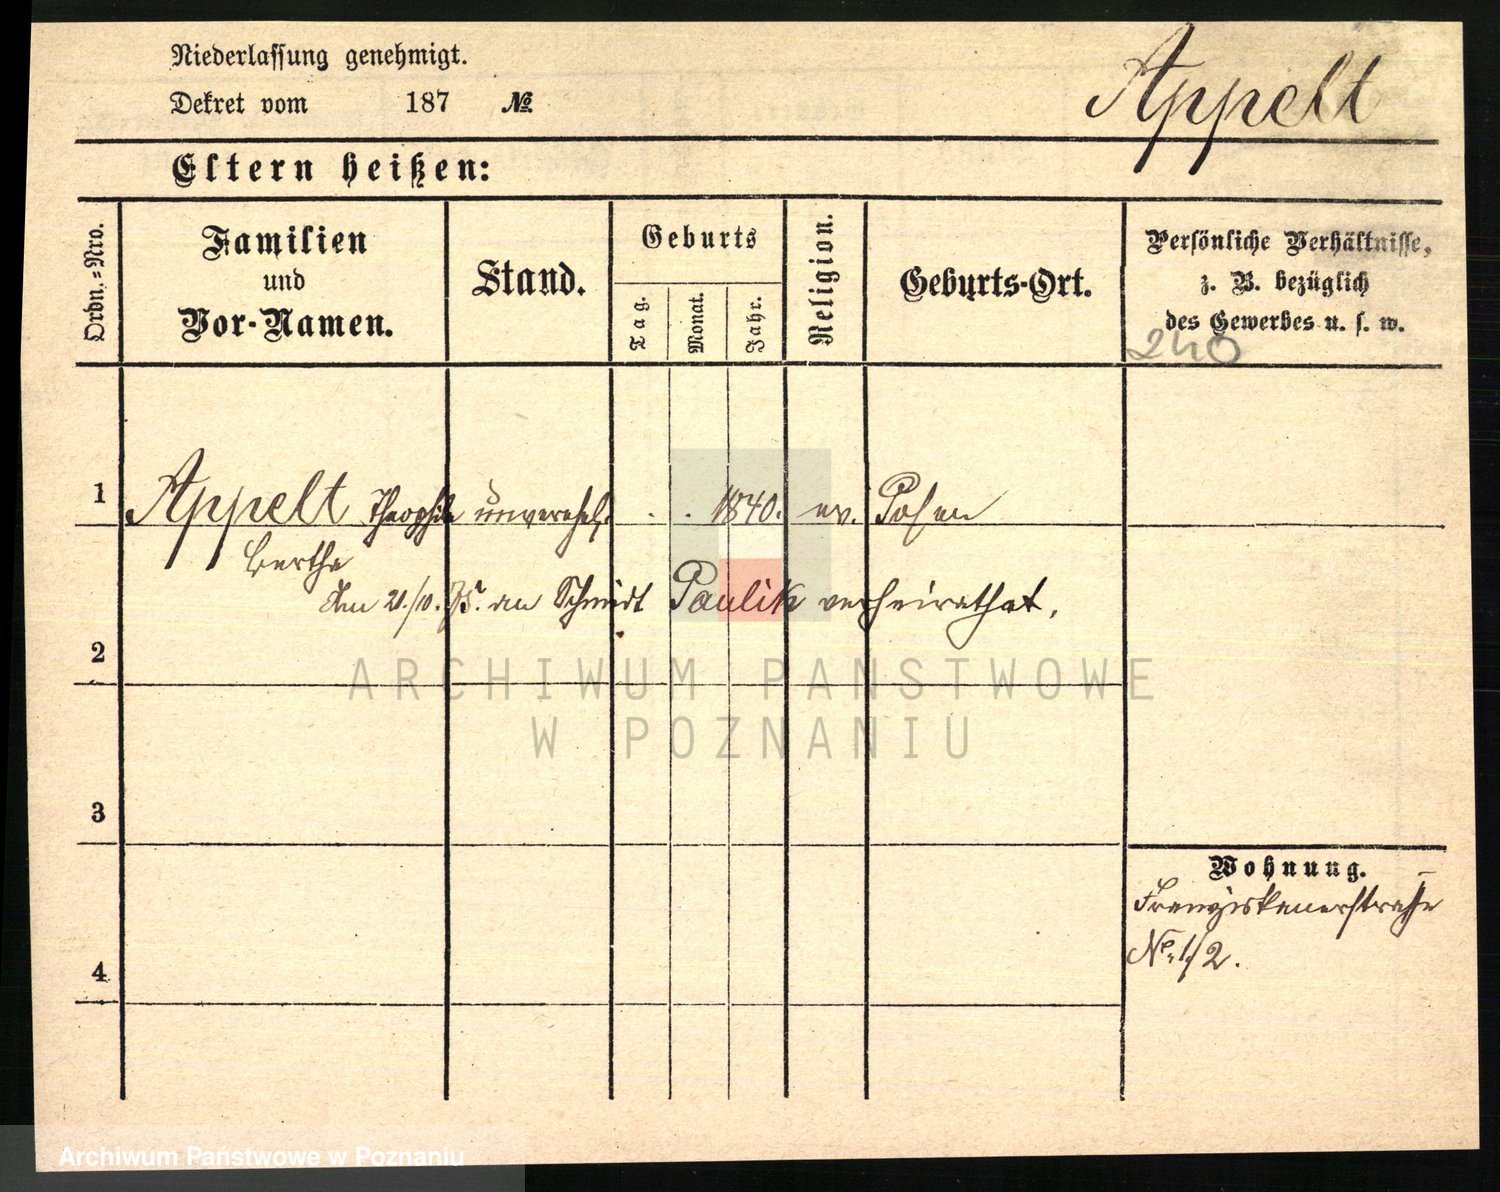 Niederlassung genehmigt.
Dekret vom 187 №
Appelt
Eltern heißen:
Ordn.=Nro.
Familien
und
Vor-Namen.
Stand.
Geburts
Tag.
Monat.
Jahr.
Religion.
Geburts-Ort.
Persönliche Verhältnisse,
z. B. bezüglich
des Gewerbes u. s. w.
240
1 Appelt Theophile unverehel. . . 1840. ev. Posen
Bertha
Am 21./10. 75. an Schmidt Paulik verheirathet.
2
ARCHIWUM PANSTWOWE
W POZNANIU
3
Wohnung.
Franziskanerstraße
No. 1/2.
4
Archiwum Państwowe w Poznaniu